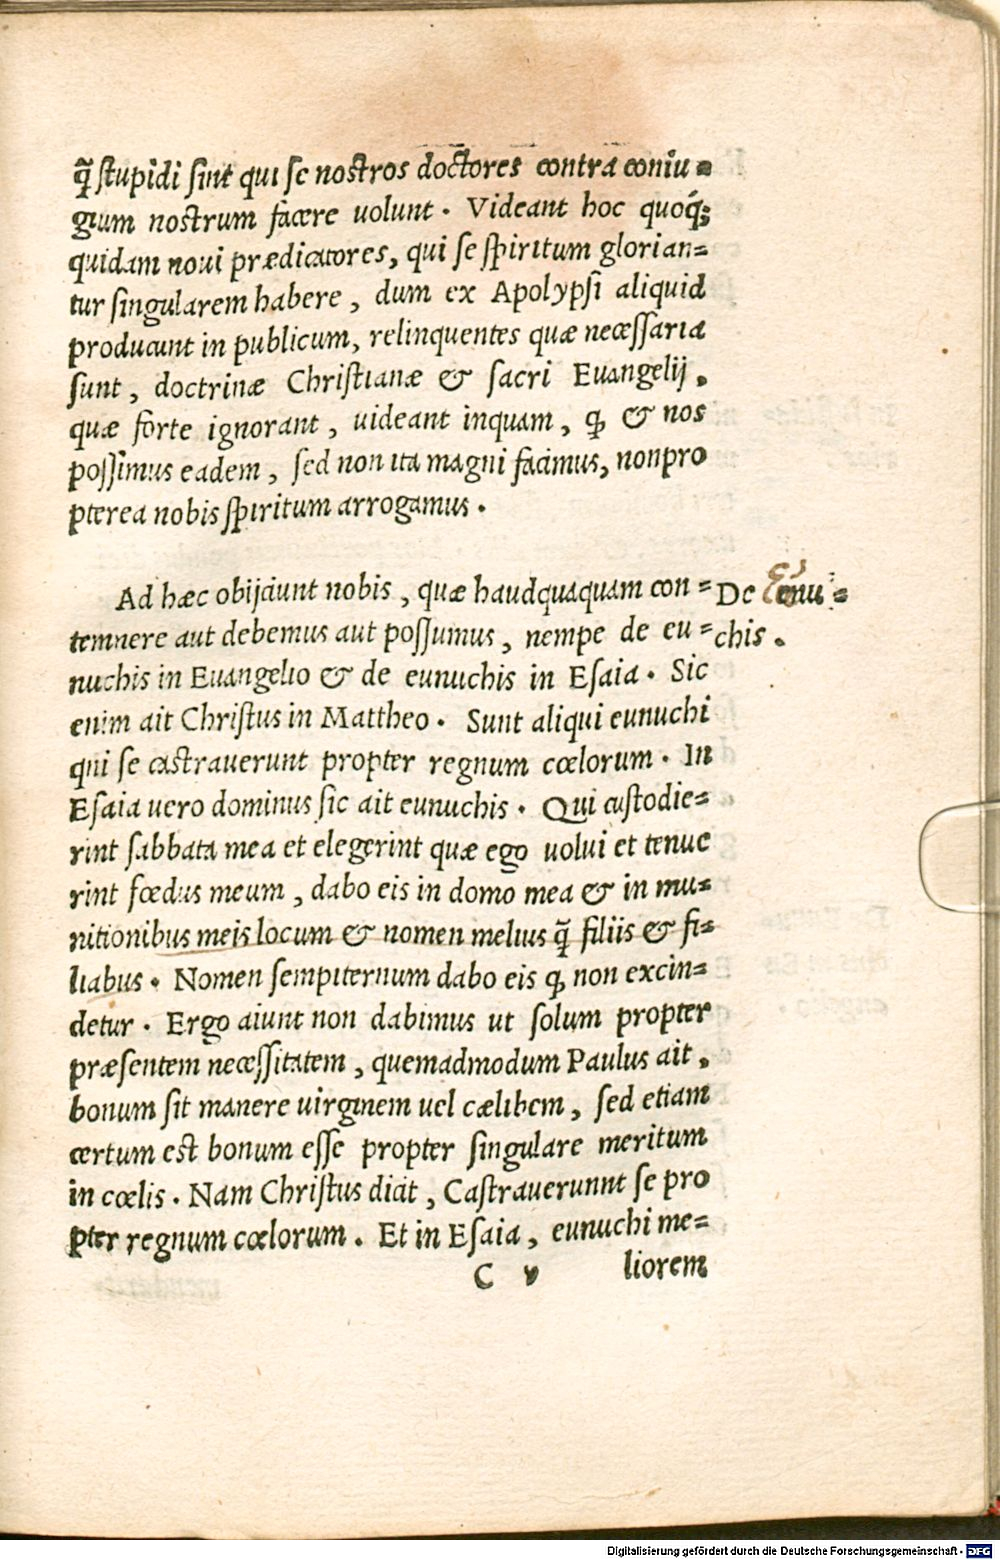 q̃ stupidi sint qui se nostros doctores contra coniu-
gium nostrum facere uolunt. Videant hoc quoq́;
quidam noui prædicatores, qui se spiritum glorian-
tur singularem habere, dum ex Apolypsi aliquid
producunt in publicum, relinquentes quæ necessaria
sunt, doctrinæ Christianæ & sacri Euangelij.
quæ forte ignorant, uideant inquam, ꝙ & nos
possimus eadem, sed non ita magni facimus, nonpro
pterea nobis spiritum arrogamus.
Ad hæc obijciunt nobis, quæ haudquaquam con-
temnere aut debemus aut possumus, nempe de eu-
nuchis in Euangelio & de eunuchis in Esaia. Sic
enim ait Christus in Mattheo. Sunt aliqui eunuchi
qui se castrauerunt propter regnum cœlorum. In
Esaia uero dominus sic ait eunuchis. Qui custodie-
rint sabbata mea et elegerint quæ ego uolui et tenue
rint fœdus meum, dabo eis in domo mea & in mu-
nitionibus meis locum & nomen melius q̃ filiis & fi-
liabus. Nomen sempiternum dabo eis ꝙ non excin-
detur. Ergo aiunt non dabimus ut solum propter
præsentem necessitatem, quemadmodum Paulus ait,
bonum sit manere uirginem uel cælibem, sed etiam
certum est bonum esse propter singulare meritum
in cœlis. Nam Christus dicit, Castrauerunnt se pro
pter regnum cœlorum. Et in Esaia, eunuchi me-
C v liorem
De Eunu-
chis.
Digitalisierung gefördert durch die Deutsche Forschungsgemeinschaft - DFG